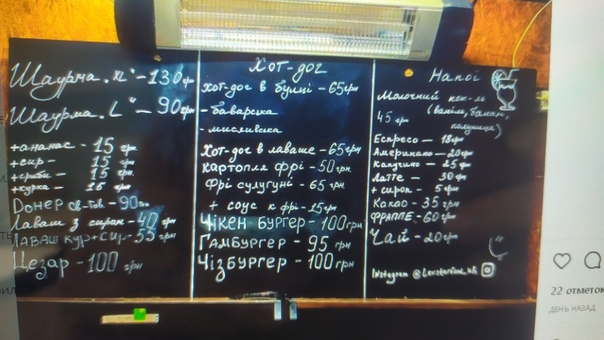 Шаурма "XL" - 130 грн
Шаурма "L" - 90 грн
+ананас - 15 грн
+сир - 15 грн
+гриби - 15 грн
+курка - 15 грн
Донер св-тов - 90 грн
Лаваш з сиром - 40 грн
Лаваш кур+сир - 55 грн
Цезар - 100 грн
Хот-дог
Хот-дог в булці - 65 грн
- баварська
- мисливська
Хот-дог в лаваше - 65 грн
Картопля фрі - 50 грн
Фрі сулугуні - 65 грн
+ соус к фрі - 15 грн
Чікен бургер - 100 грн
Гамбургер - 95 грн
Чізбургер - 100 грн
Напої
Молочний кок-ль
45 грн (ваніль, банан,
полуниця)
Еспресо - 18 грн
Американо - 20 грн
Капучино - 45 грн
Латте - 30 грн
+ сироп - 5 грн
Какао - 35 грн
ФРАППЕ - 60 грн
Чай - 20 грн
Instagram
22 отметок
ДЕНЬ НАЗАД